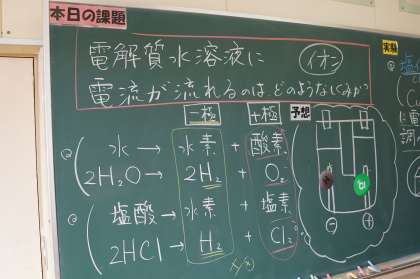 本日の課題
電解質水溶液に
イオン
電流が流れるのは、どのようなしくみか
−極 +極
予想
水 → 水素 + 酸素
2H₂O → 2H₂ + O₂
塩酸 → 水素 + 塩素
2HCl → H₂ + Cl₂
− +
実験